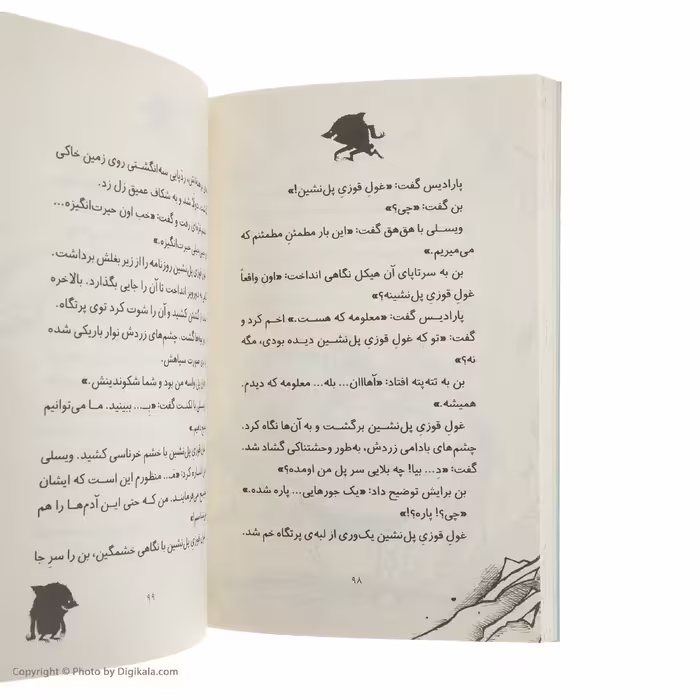 پارادیس گفت: «غولِ قوزیِ پل‌نشین!»
بن گفت: «چی؟»
ویسلی با هق‌هق گفت: «این بار مطمئنِ مطمئنم که
می‌میریم.»
بن به سرتاپای آن هیکل نگاهی انداخت: «اون واقعاً
غولِ قوزیِ پل‌نشینه؟»
پارادیس گفت: «معلومه که هست.» اخم کرد و
گفت: «تو که غولِ قوزیِ پل‌نشین دیده بودی، مگه
نه؟»
بن به تته‌پته افتاد: «آهااان... بله... معلومه که دیدم.
همیشه.»
غولِ قوزیِ پل‌نشین برگشت و به آن‌ها نگاه کرد.
چشم‌های بادامی زردش، به‌طور وحشتناکی گشاد شد.
گفت: «دِ... بیا! چه بلایی سر پل من اومده؟»
بن برایش توضیح داد: «یک جورهایی... پاره شده.»
«چی؟! پاره؟!»
غولِ قوزیِ پل‌نشین یک‌وری از لبه‌ی پرتگاه خم شد.
۹۸
ردّپایی سه‌انگشتی روی زمین خاکی
شد و به شکاف عمیق زل زد.
رفت و گفت: «خب اون حیرت‌انگیزه...
حیرت‌انگیزه.»
پل‌نشین روزنامه را از زیر بغلش برداشت.
انداخت تا آن را جایی بگذارد. بالاخره
کشید و آن را شوت کرد توی پرتگاه.
چشم‌های زردش نوار باریکی شده
صورت سیاهش.
پل واسه من بود و شما شکوندینش.»
با لکنت گفت: «بـ... ببینید. ما می‌توانیم
پل‌نشین با خشم خرناسی کشید. ویسلی
کرد: «مـ... منظورم این است که ایشان
من که حتی این آدم‌ها را هم
پل‌نشین با نگاهی خشمگین، بن را سرِ جا
۹۹
Copyright © Photo by Digikala.com